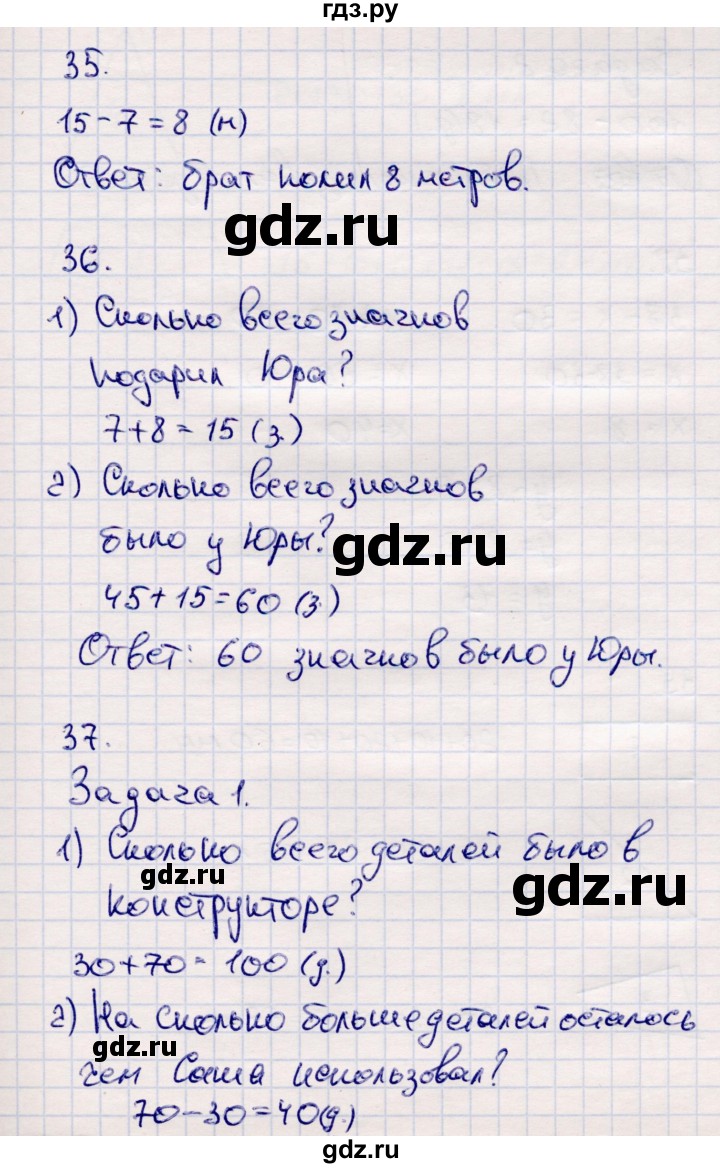 гдз.ру
35.
15-7=8 (м)
Ответ: брат полил 8 метров.
gdz.ru
36.
1) Сколько всего значков
подарил Юра?
7+8=15 (з.)
2) Сколько всего значков
было у Юры?
gdz.ru
45+15=60 (з.)
Ответ: 60 значков было у Юры.
37.
Задача 1.
1) Сколько всего деталей было в
gdz.ru
конструкторе?
gdz.ru
30+70=100 (д.)
2) На сколько больше деталей осталось
gdz.ru
чем Саша использовал?
70-30=40(д.)
gdz.ru